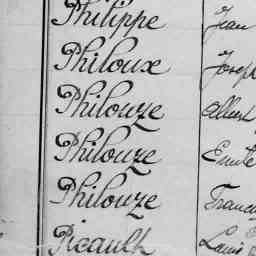 Philippe Jean
Philoux Joseph
Philouze Albert
Philouze Emile
Philouze
Picault Louis